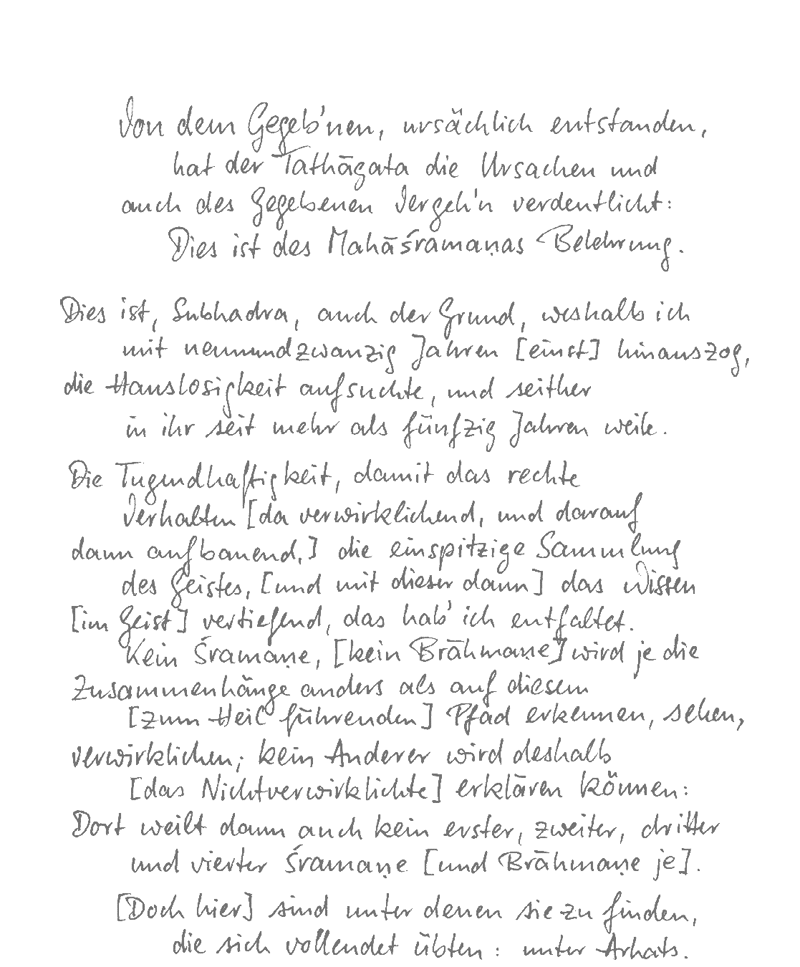 Von dem Gegeb'nen, ursächlich entstanden,
hat der Tathāgata die Ursachen und
auch des Gegebenen Vergeh'n verdeutlicht:
Dies ist des Mahāśramaṇas Belehrung.
Dies ist, Subhadra, auch der Grund, weshalb ich
mit neunundzwanzig Jahren [einst] hinauszog,
die Hauslosigkeit aufsuchte, und seither
in ihr seit mehr als fünfzig Jahren weile.
Die Tugendhaftigkeit, damit das rechte
Verhalten [da verwirklichend, und darauf
dann aufbauend,] die einspitzige Sammlung
des Geistes, [und mit dieser dann] das Wissen
[im Geist] vertiefend, das hab' ich entfaltet.
Kein Śramaṇe, [kein Brāhmaṇe] wird je die
Zusammenhänge anders als auf diesem
[zum Heil führenden] Pfad erkennen, sehen,
verwirklichen; kein Anderer wird deshalb
[das Nichtverwirklichte] erklären können:
Dort weilt dann auch kein erster, zweiter, dritter
und vierter Śramaṇe [und Brāhmaṇe je].
[Doch hier] sind unter denen sie zu finden,
die sich vollendet übten: unter Arhats.